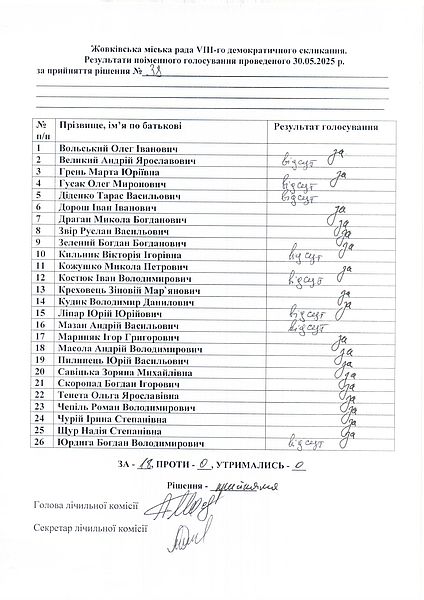 Жовківська міська рада VIII-го демократичного скликання.
Результати поіменного голосування проведеного 30.05.2025 р.
за прийняття рішення № 38
№ п/п Прізвище, ім’я по батькові Результат голосування
1 Вольський Олег Іванович за
2 Великий Андрій Ярославович відсут
3 Грень Марта Юріївна за
4 Гусак Олег Миронович відсут
5 Діденко Тарас Васильович відсут
6 Дорош Іван Іванович за
7 Драган Микола Богданович за
8 Звір Руслан Васильович за
9 Зелений Богдан Богданович за
10 Кильник Вікторія Ігорівна відсут
11 Кожушко Микола Петрович за
12 Костюк Іван Володимирович відсут
13 Креховець Зіновій Мар`янович за
14 Кудик Володимир Данилович за
15 Ліпар Юрій Юрійович відсут
16 Мазан Андрій Васильович відсут
17 Мариняк Ігор Григорович за
18 Масола Андрій Володимирович за
19 Пилипець Юрій Васильович за
20 Савіцька Зоряна Михайлівна за
21 Скоропад Богдан Ігорович за
22 Тенета Ольга Ярославівна за
23 Чепіль Роман Володимирович за
24 Чурій Ірина Степанівна за
25 Щур Надія Степанівна за
26 Юрдига Богдан Володимирович відсут
ЗА - 18, ПРОТИ - 0, УТРИМАЛИСЬ - 0
Рішення - прийняте
Голова лічильної комісії
Секретар лічильної комісії